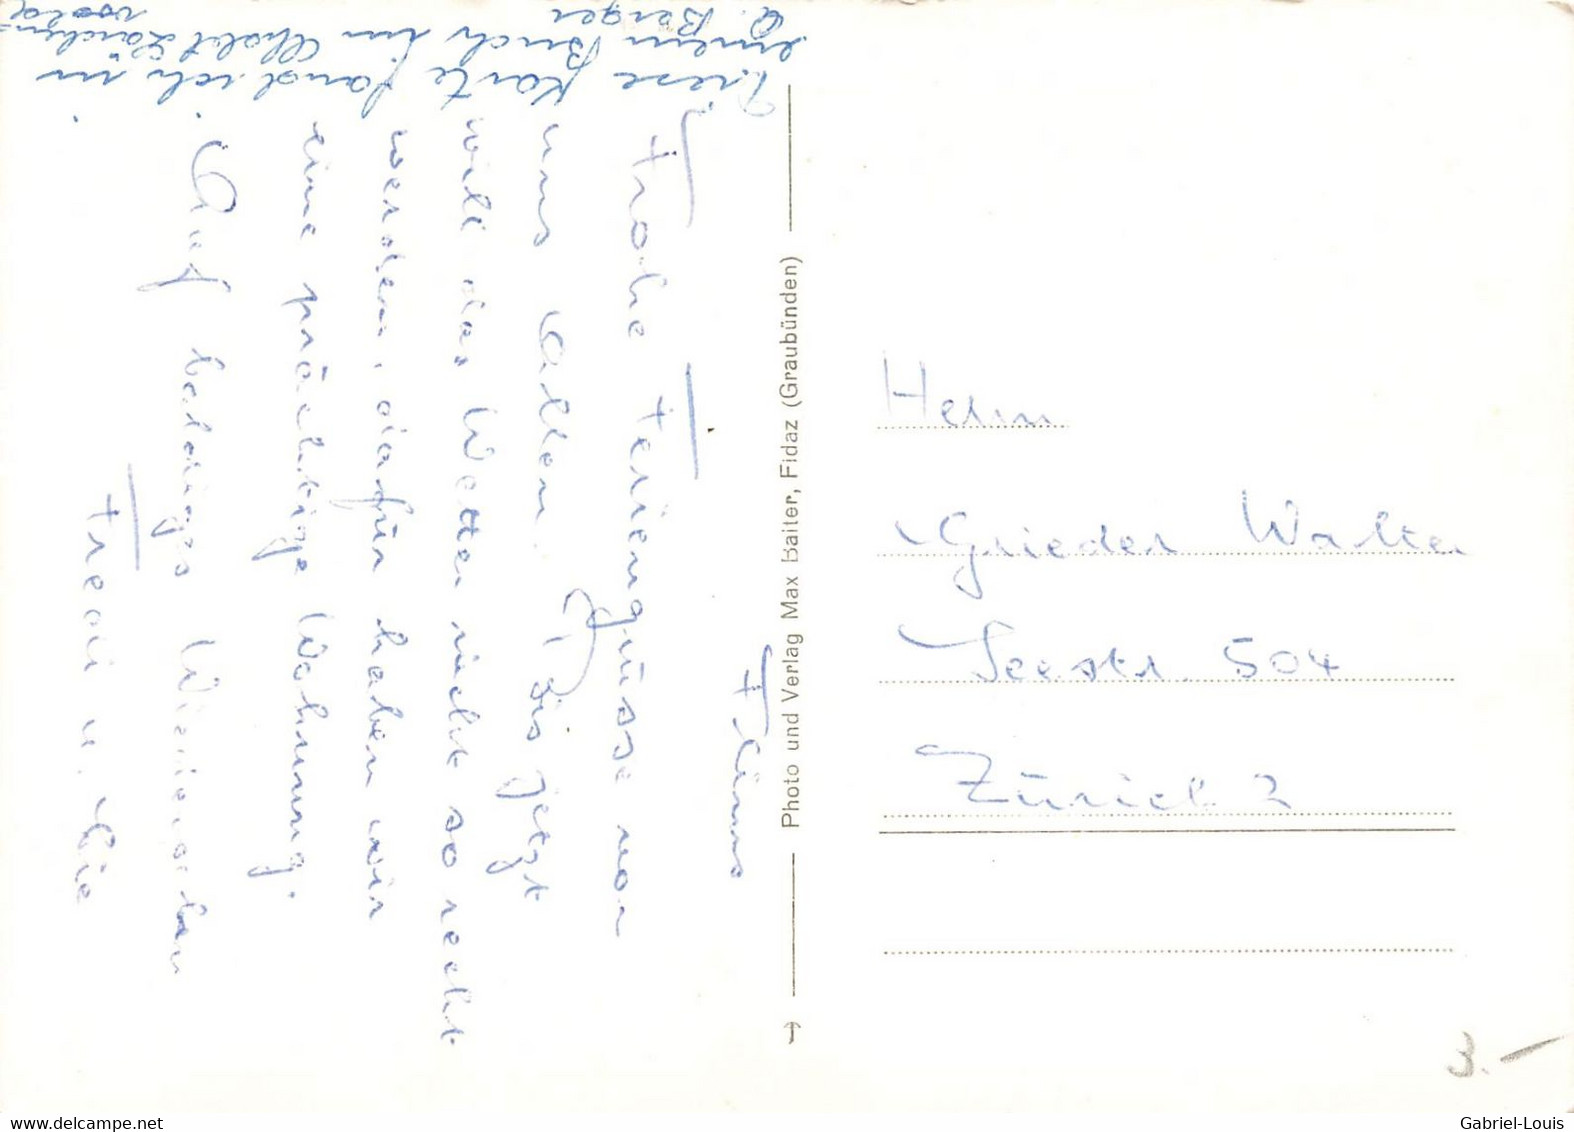 Flims
Frohe Feriengrüsse von
uns Allen. Bis jetzt
will das Wetter nicht so recht
werden, dafür haben wir
eine prächtige Wohnung.
Auf baldiges Wiedersehen
Fredi u. Pia
Diese Karte fand ich in
einem Buch im Chalet Lärchen-
Q. Berger
Photo und Verlag Max Baiter, Fidaz (Graubünden)
Herrn
Grieder Walter
Seestr. 504
Zürich 2
3.-
www.delcampe.net
Gabriel-Louis